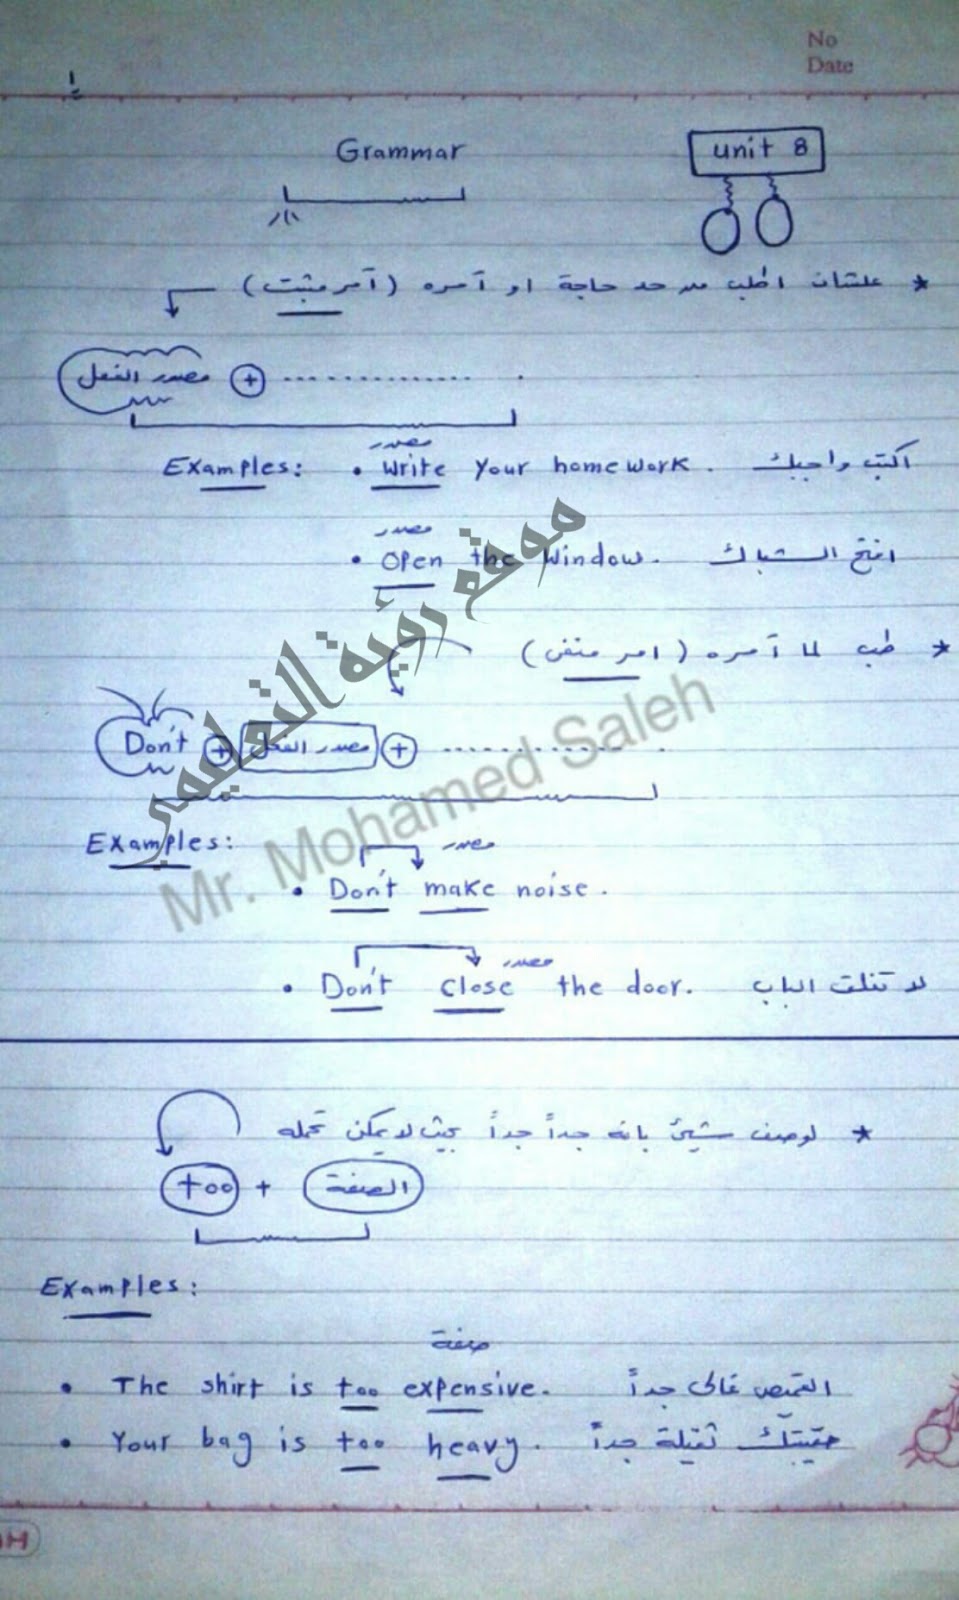 No
Date
١
Grammar
unit 8
* علشان اطلب من حد حاجة او آمره (آمر مثبت)
مصدر الفعل + ...............
مصدر
Examples: • Write your homework. اكتب واجبك
مصدر
• Open the window. افتح الشباك
* طب لما آمره (امر منفى)
Don't + مصدر الفعل + ...............
Examples:
مصدر
• Don't make noise.
مصدر
• Don't close the door. لا تغلق الباب
* لوصف شيئ بانه جداً جداً بحيث لا يمكن تحمله
too + الصفة
Examples:
صفة
• The shirt is too expensive. القميص غالى جداً
• Your bag is too heavy. حقيبتك ثقيلة جداً
موقع رؤية التعليمي
Mr. Mohamed Saleh